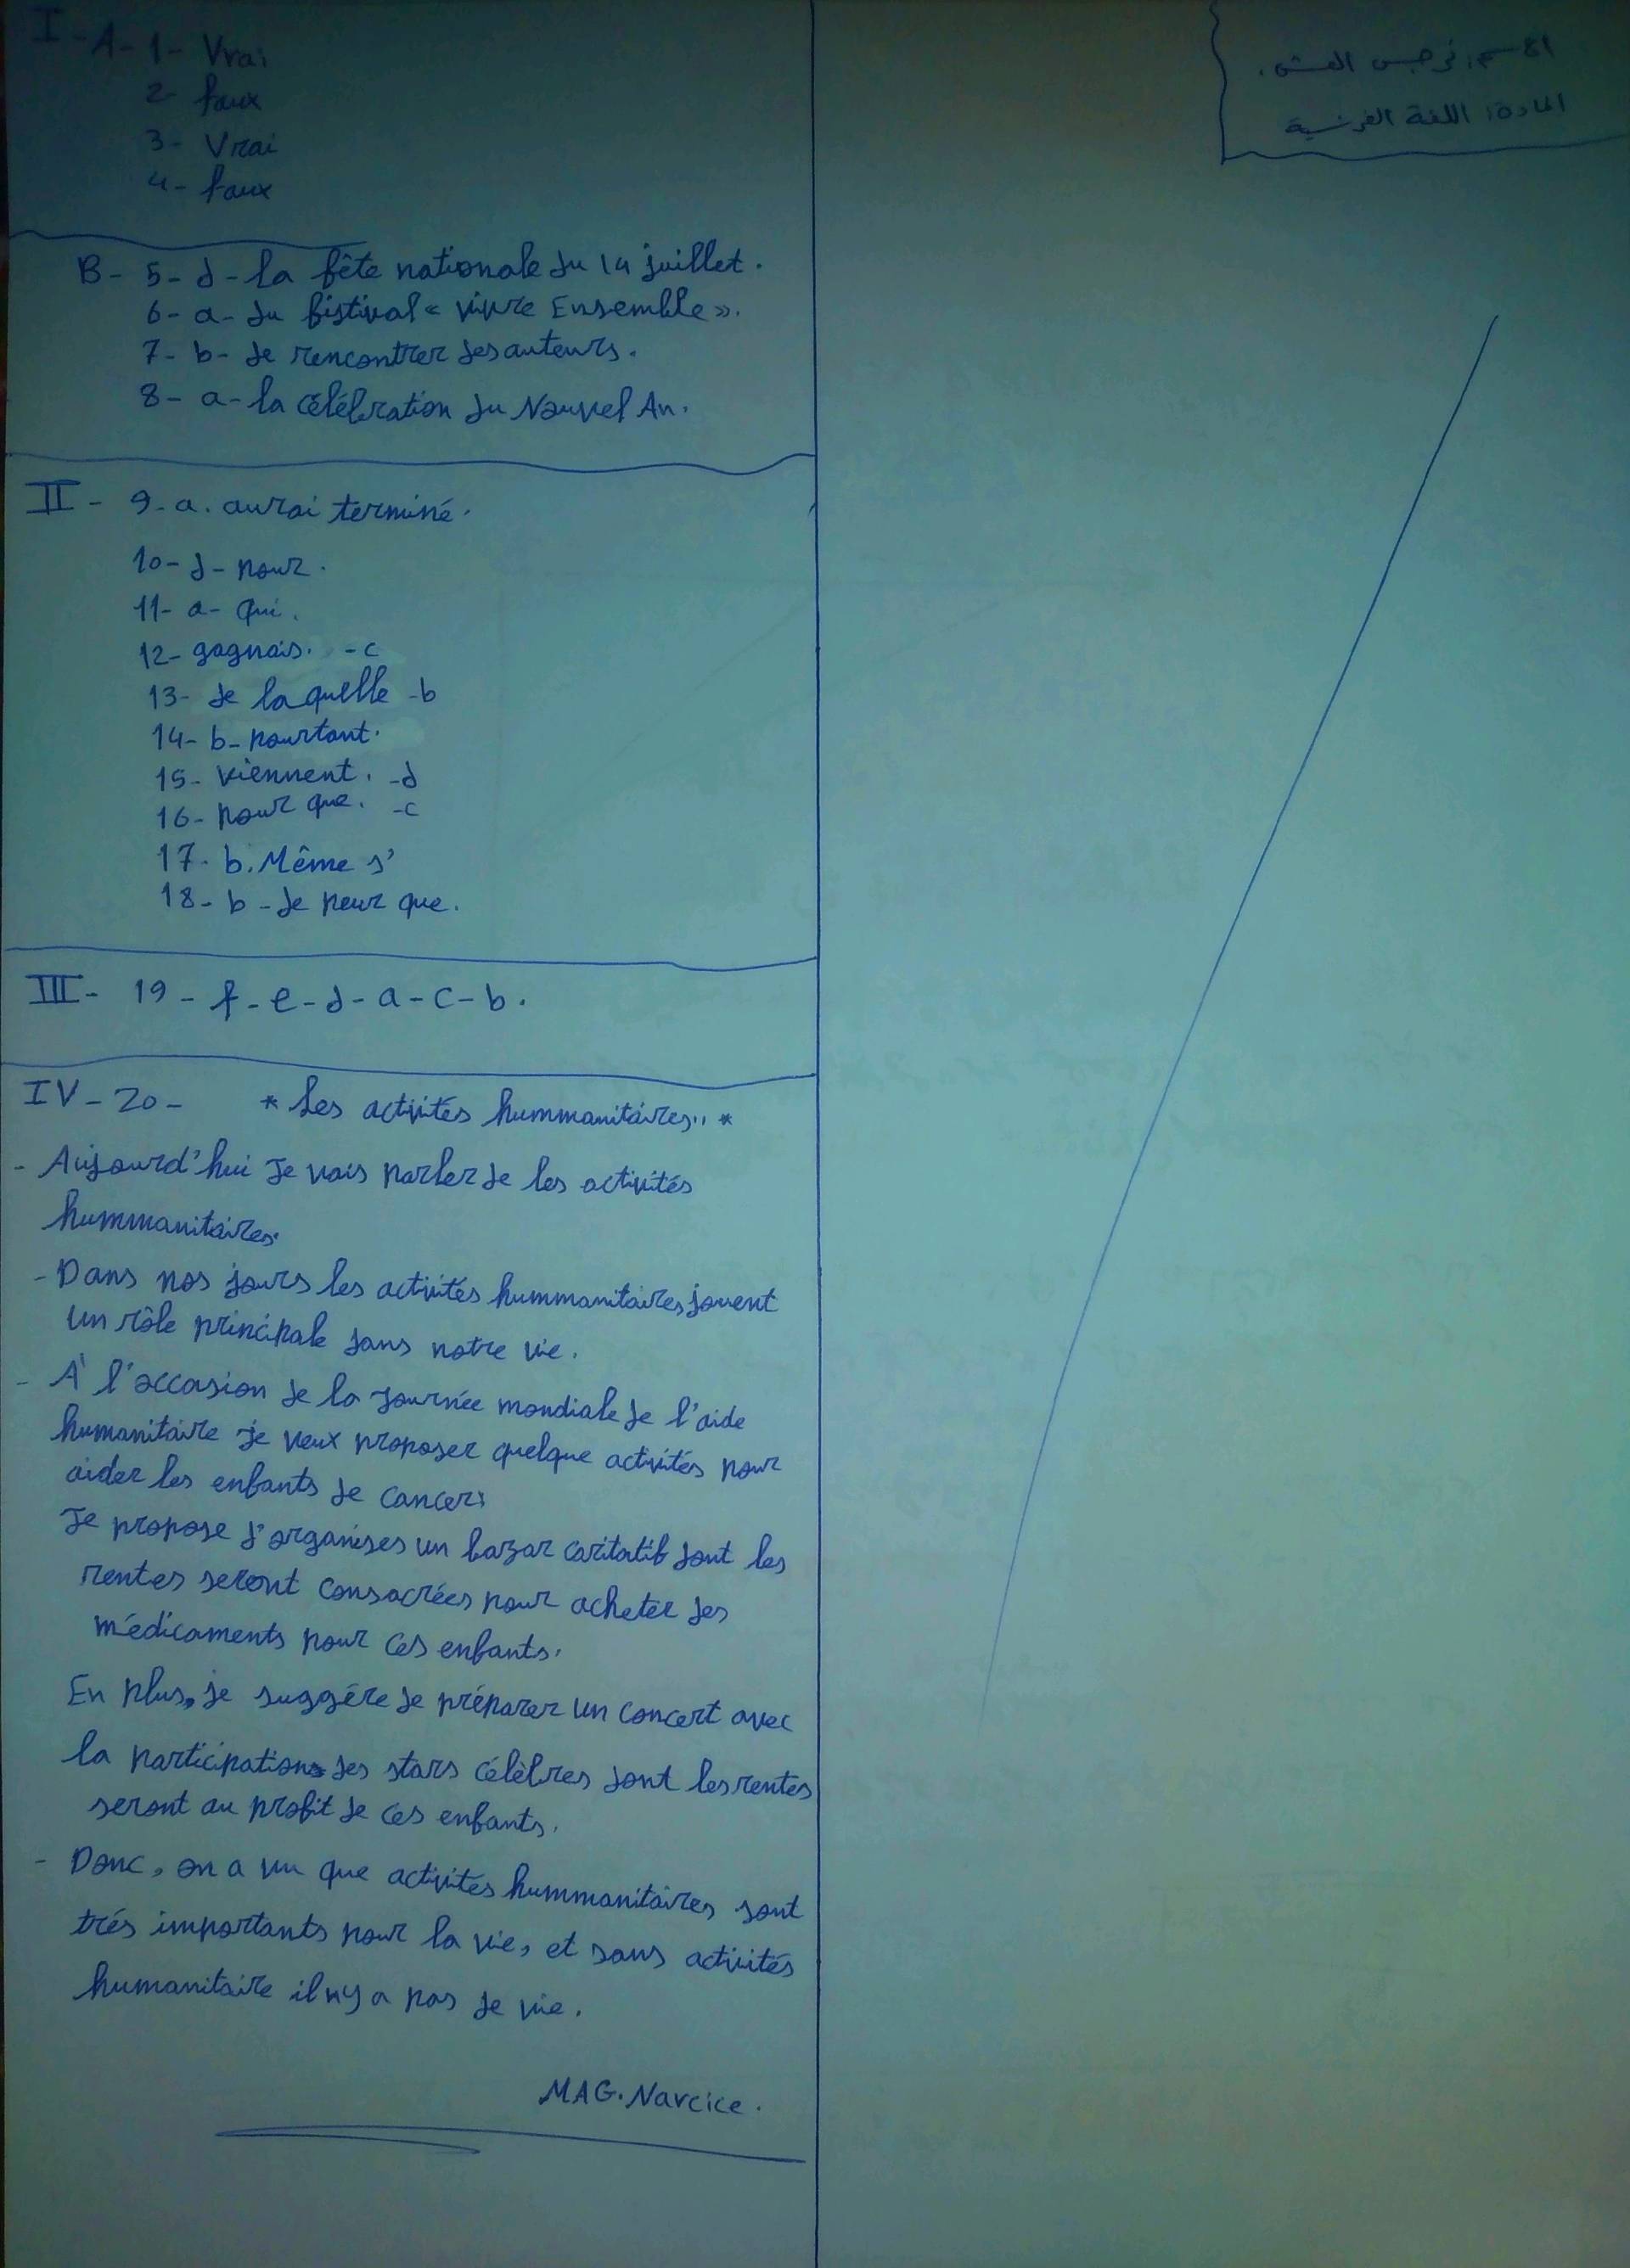 الاسم: نرجس العش.
المادة: اللغة الفرنسية
I - A - 1 - Vrai
2 - faux
3 - Vrai
4 - faux
B - 5 - d - la fête nationale du 14 juillet.
6 - a - du fistival « vivre Ensemble ».
7 - b - de rencontrer des auteurs.
8 - a - la célébration du Nouvel An.
II - 9 - a. aurai terminé.
10 - d - pour.
11 - a - qui.
12 - gagnais. - c
13 - de laquelle - b
14 - b - pourtant.
15 - viennent. - d
16 - pour que. - c
17 - b. Même s'
18 - b - de peur que.
III - 19 - f - e - d - a - c - b.
IV - 20 - * Les activités hummanitaires.. *
- Aujourd'hui Je vais parler de les activités
hummanitaires.
- Dans nos jours les activités hummanitaires jouent
un rôle principale dans notre vie.
- À l'occasion de la Journée mondiale de l'aide
humanitaire je veux proposer quelque activités pour
aider les enfants de cancer:
Je propose d'organises un bazar caritatif dont les
rentes seront consacrées pour acheter des
médicaments pour ces enfants.
En plus, je suggére de préparer un concert avec
la participation des stars célèbres dont les rentes
seront au profit de ces enfants.
- Donc, on a vu que activités hummanitaires sont
trés importants pour la vie, et sans activités
humanitaire il ny a pas de vie.
MAG. Narcice.